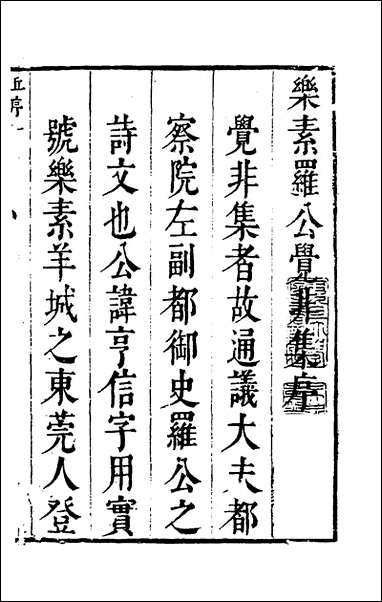 樂素羅公覺非集序
覺非集者故通議大夫都
察院左副都御史羅公之
詩文也公諱亨信字用實
號樂素羊城之東莞人登